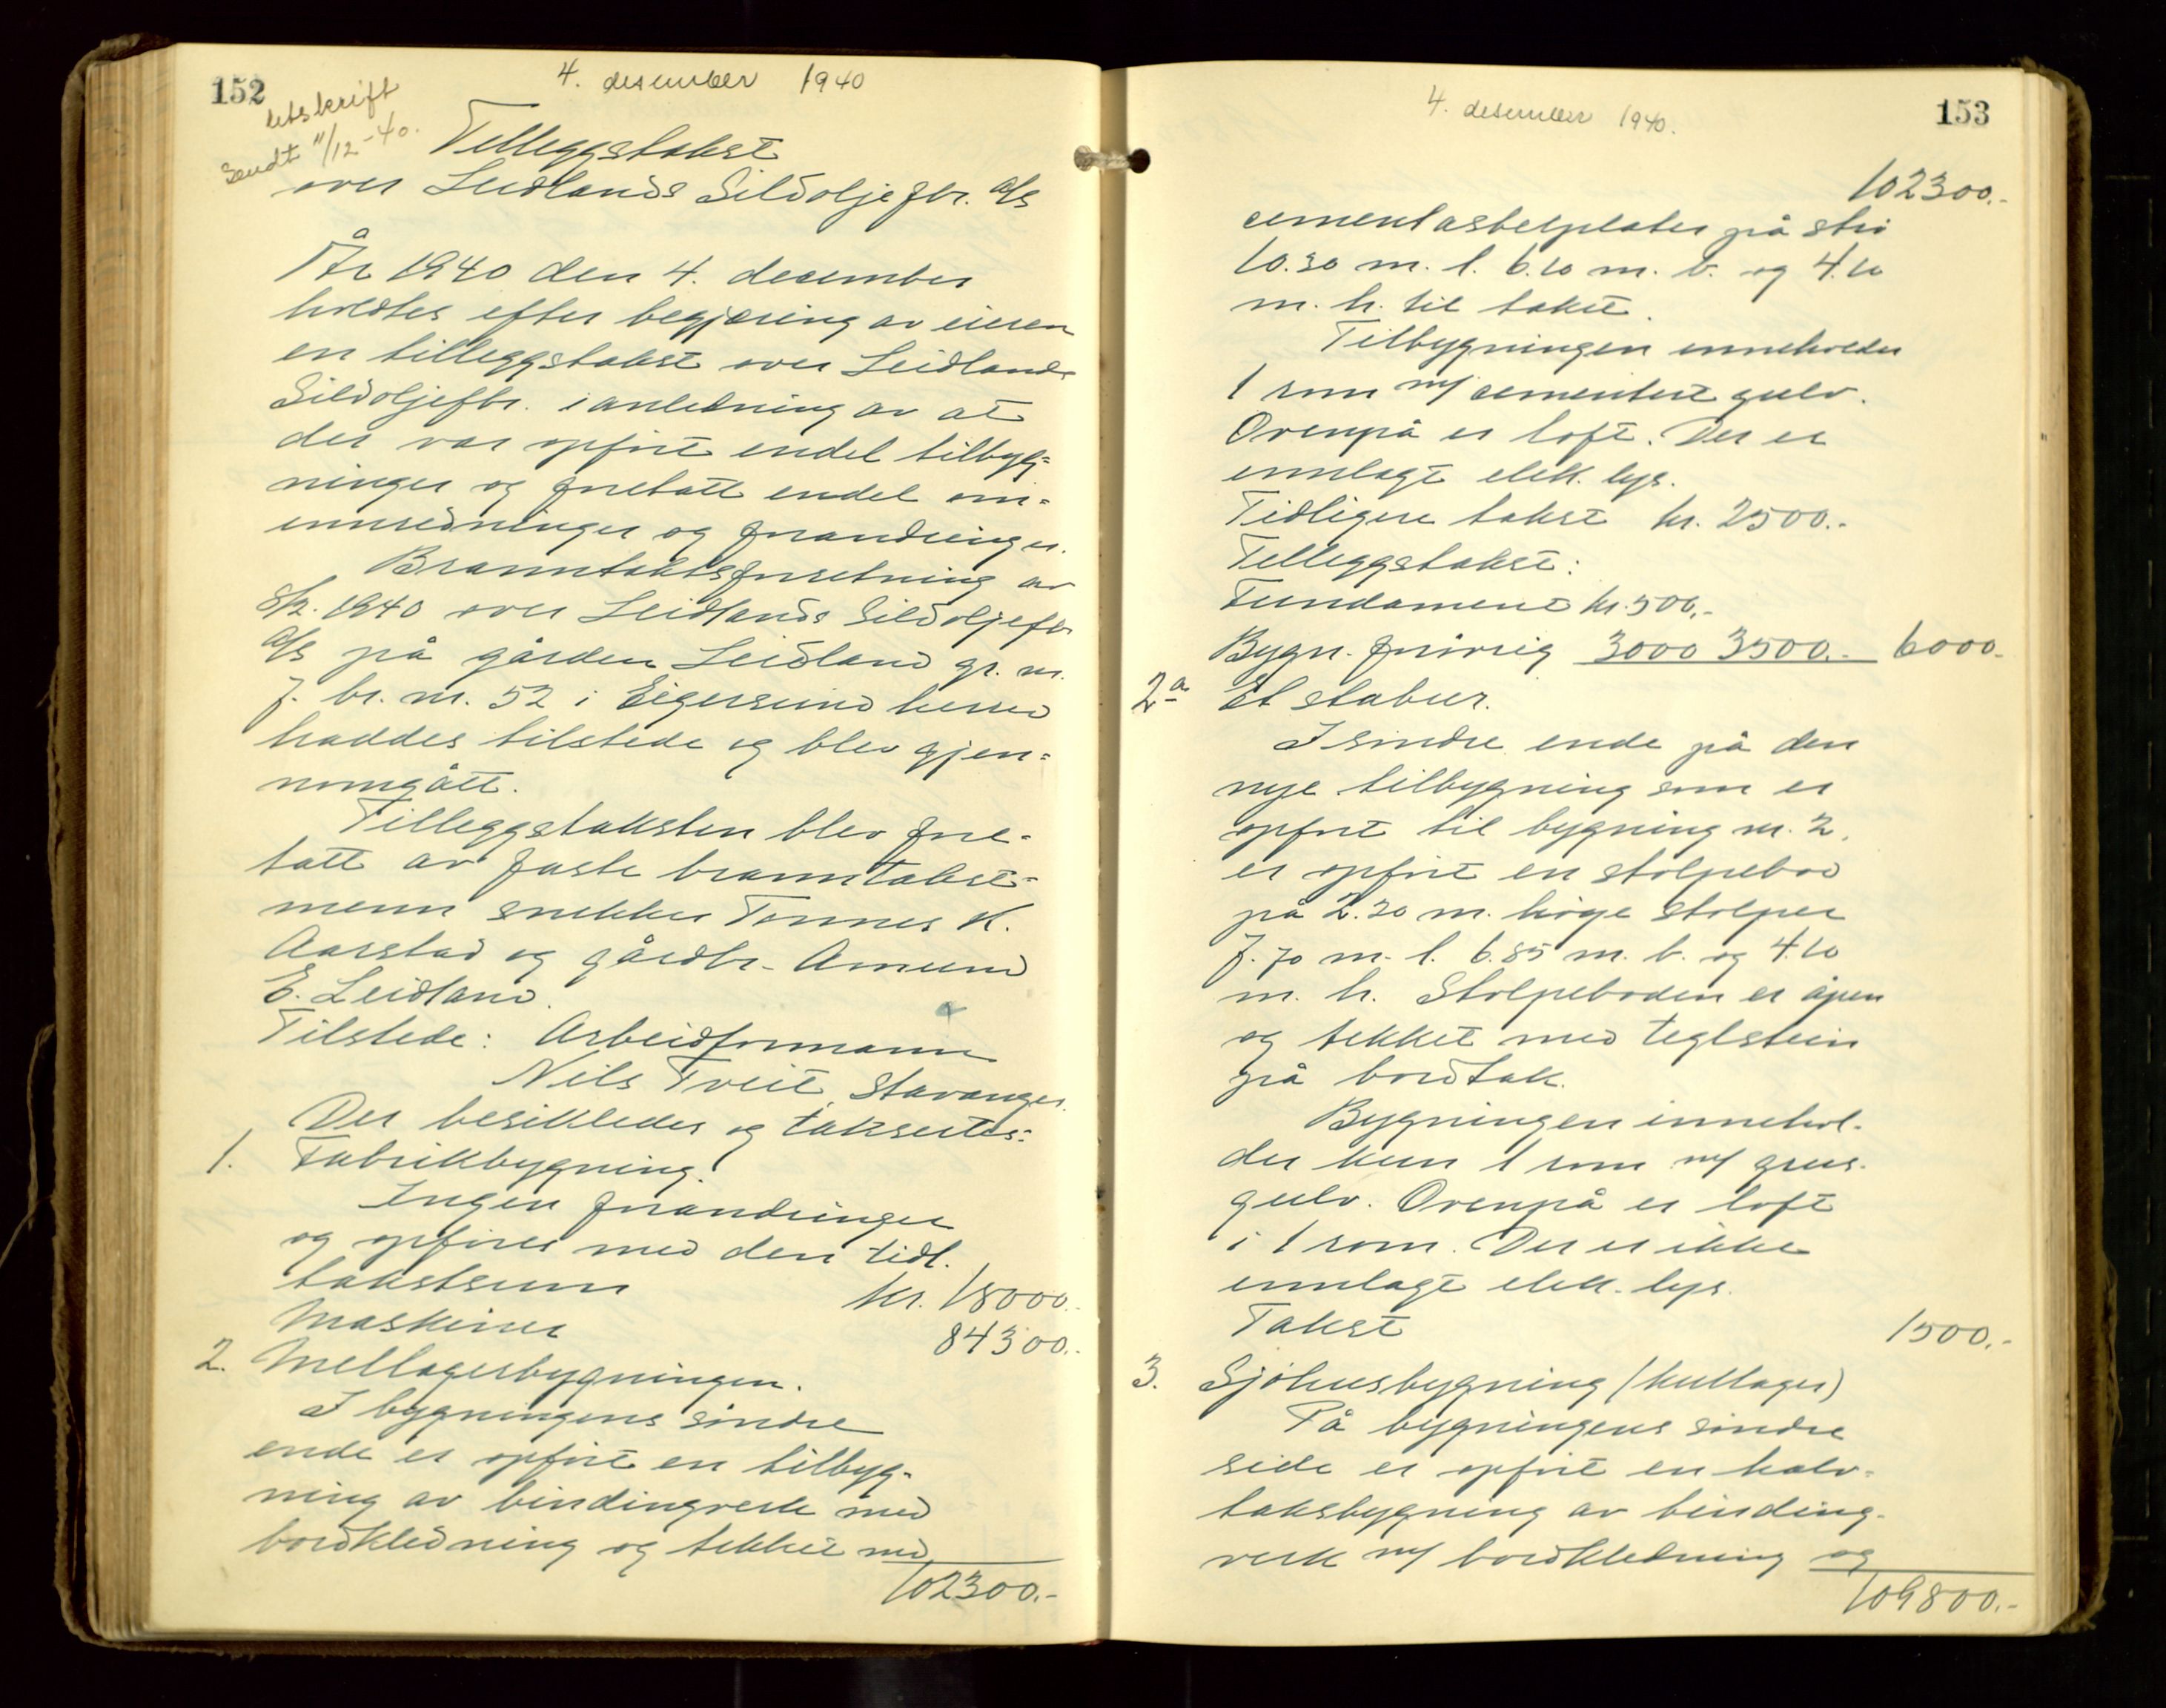 152
4. desember 1940
Utskrift
Sendt 11/12-40.
Tilleggstakst
over Leidlands Sildoljefbr. A/S
År 1940 den 4. desember
holdtes efter begjæring av eieren
en tilleggstakst over Leidlands
Sildoljefbr. i anledning av at
der var opført endel tilbyg=
ninger og foretatt endel om=
innredninger og forandringer.
Branntakstforretning av
8/2. 1940 over Leidlands Sildoljefbr
A/S på gården Leidland gr. nr.
7. br. nr. 52 i Eigersund herred
haddes tilstede og blev gjen=
nomgått.
Tilleggstaksten blev fore-
tatt av faste branntakst=
menn snekker Tønnes K.
Aarstad og gårdbr. Amund
E. Leidland.
Tilstede: Arbeidsformann
Nils Tveit, Stavanger.
Der besiktedes og taksertes:
1. Fabrikbygning.
Ingen forandringer
og opføres med den tidl.
takstsum kr. 18000.-
Maskiner 84300.-
2. Mellagerbygningen.
I bygningens søndre
ende er opført en tilbyg-
ning av bindingverk med
bordkledning og tekket med
102300.-
4. desember 1940.
153
102300.-
cementasbestplater på stri
10.30 m. l. 6.10 m. b. og 4.10
m. h. til taket.
Tilbygningen inneholder
1 rom m/ cementert gulv.
Ovenpå er loft. Der er
innlagt elek. lys.
Tidligere takst kr. 2500.-
Tilleggstakst:
Fundament kr. 500.-
Bygn. forøvrig 3000 3500.- 6000.-
2a Et stabur.
I søndre ende på den
nye tilbygning som er
opført til bygning nr. 2.
er opført en stolpebod
på 2.20 m. høige stolper
7.70 m. l. 6.85 m. b. og 4.10
m. h. Stolpeboden er åpen
og tekket med teglstein
på bordtak.
Bygningen innehol-
der kun 1 rom m/ grus-
gulv. Ovenpå er loft
i 1 rom. Der er ikke
innlagt elek. lys.
Takst 1500.-
3. Sjøhusbygning (kullager)
På bygningens søndre
side er opført en halv-
taksbygning av binding-
verk m/ bordkledning og
109800.-